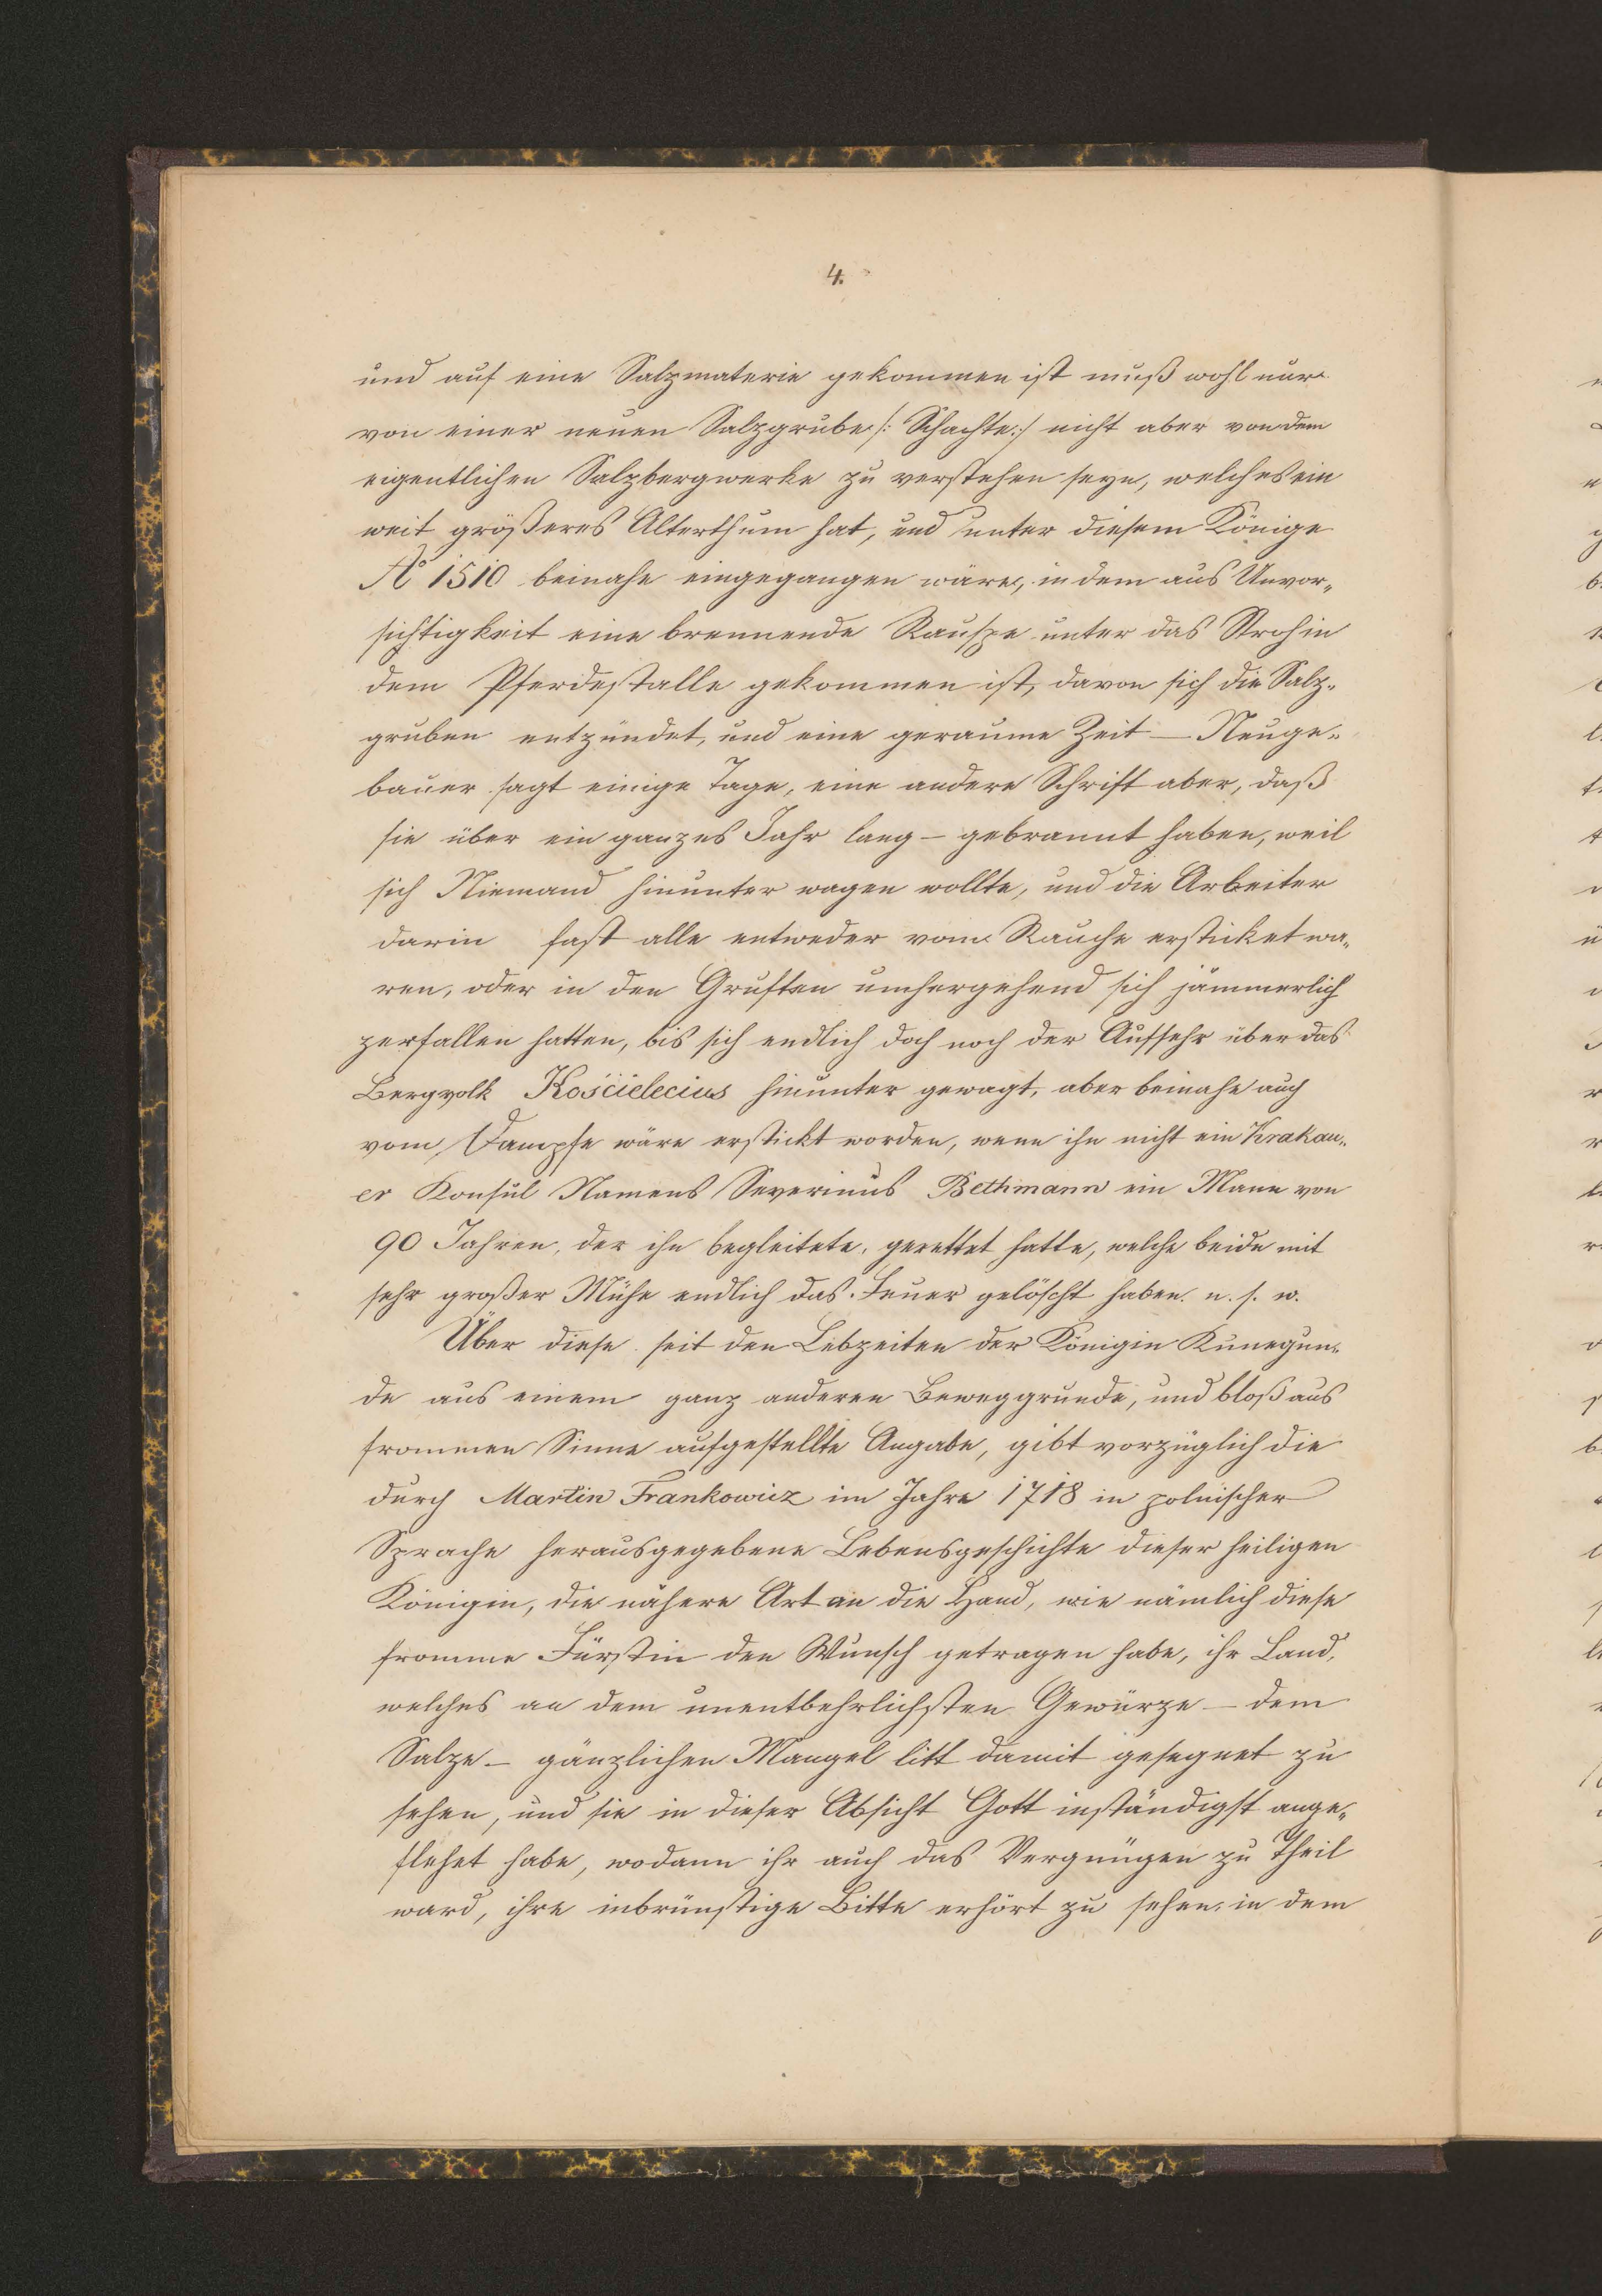 4.
und auf eine Salzmaterie gekommen ist muß wohl nur
von einer neuen Salzgrube /: Schachte :/ nicht aber von dem
eigentlichen Salzbergwerke zu verstehen seyn, welches ein
weit größeres Alterthum hat, und unter diesem Könige
Aº 1510 beinahe eingegangen wäre, in dem aus Unvor„
sichtigkeit eine brennende unter das Stroh in
dem Pferdestalle gekommen ist, davon sich die Salz„
gruben entzündet, und eine geraume Zeit — Neuge„
bauer sagt einige Tage, eine andere Schrift aber, daß
sie über ein ganzes Jahr lang — gebrannt haben, weil
sich Niemand hinunter wagen wollte, und die Arbeiter
darin fast alle entweder vom Rauche ersticket wa„
ren, oder in den Gruften umhergehend sich jämmerlich
zerfallen hatten, bis sich endlich doch noch der Aufseher über das
Bergvolk Kościelecius hinunter gewagt, aber beinahe auch
vom Dampfe wäre erstickt worden, wenn ihn nicht ein Krakau„
er Konsul Namens Severinus Bethmann ein Mann von
90 Jahren, der ihn begleitete, gerettet hatte, welche beide mit
sehr großer Mühe endlich das Feuer gelöscht haben. u. s. w.
Über diese seit den Lebzeiten der Königin Kunegun„
de aus einem ganz anderen Beweggrunde, und bloß aus
frommen Sinne aufgestellte Angabe, gibt vorzüglich die
durch Martin Frankowicz im Jahre 1718 in polnischer
Sprache herausgegebene Lebensgeschichte dieser heiligen
Königin, die nähere Art an die Hand, wie nämlich diese
fromme Fürstin den Wunsch getragen habe, ihr Land,
welches an dem unentbehrlichsten Gewürze — dem
Salze — gänzlichen Mangel litt damit gesegnet zu
sehen, und sie in dieser Absicht Gott inständigst ange„
flehet habe, wodann ihr auch das Vergnügen zu Theil
ward, ihre inbrünstige Bitte erhört zu sehen, in dem